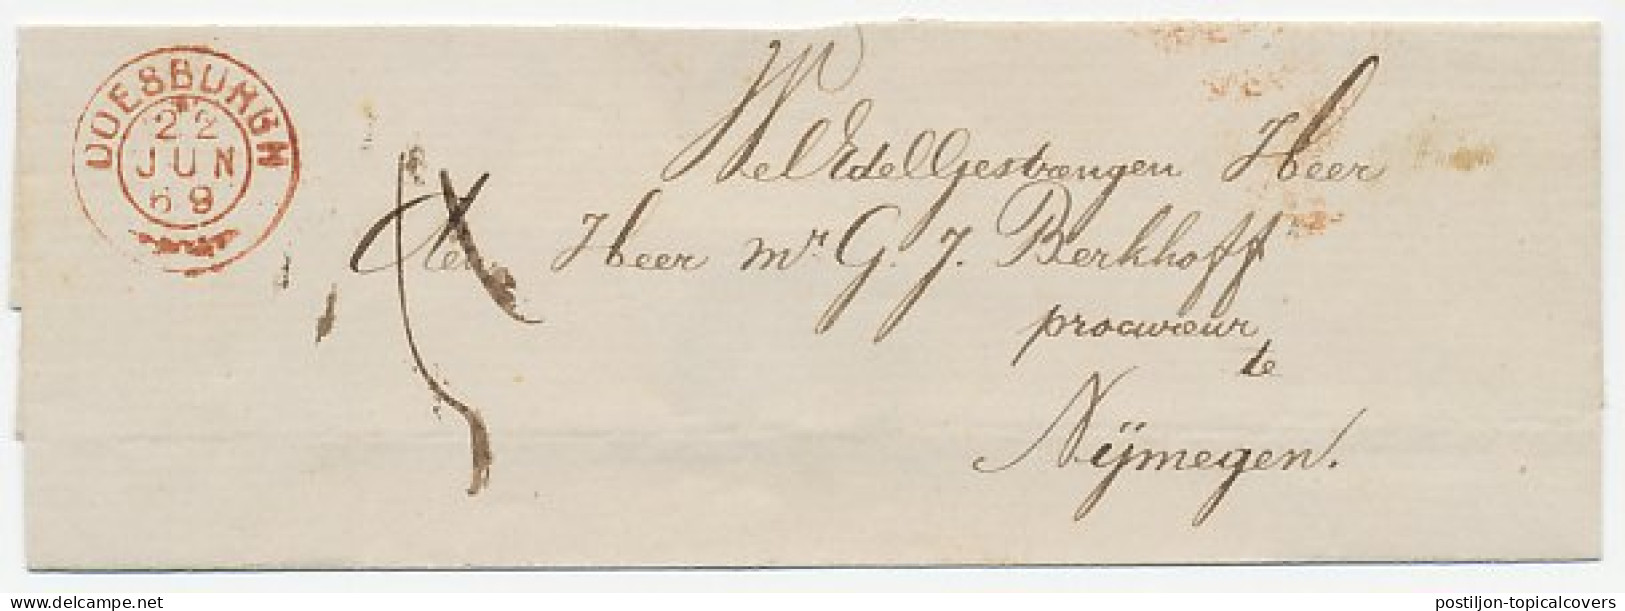 DOESBURGH
22
JUN
69
WelEdelGestrengen Heer
den Heer mr G. J. Berkhoff
procureur
te
Nijmegen.
postiljon-topicalcovers